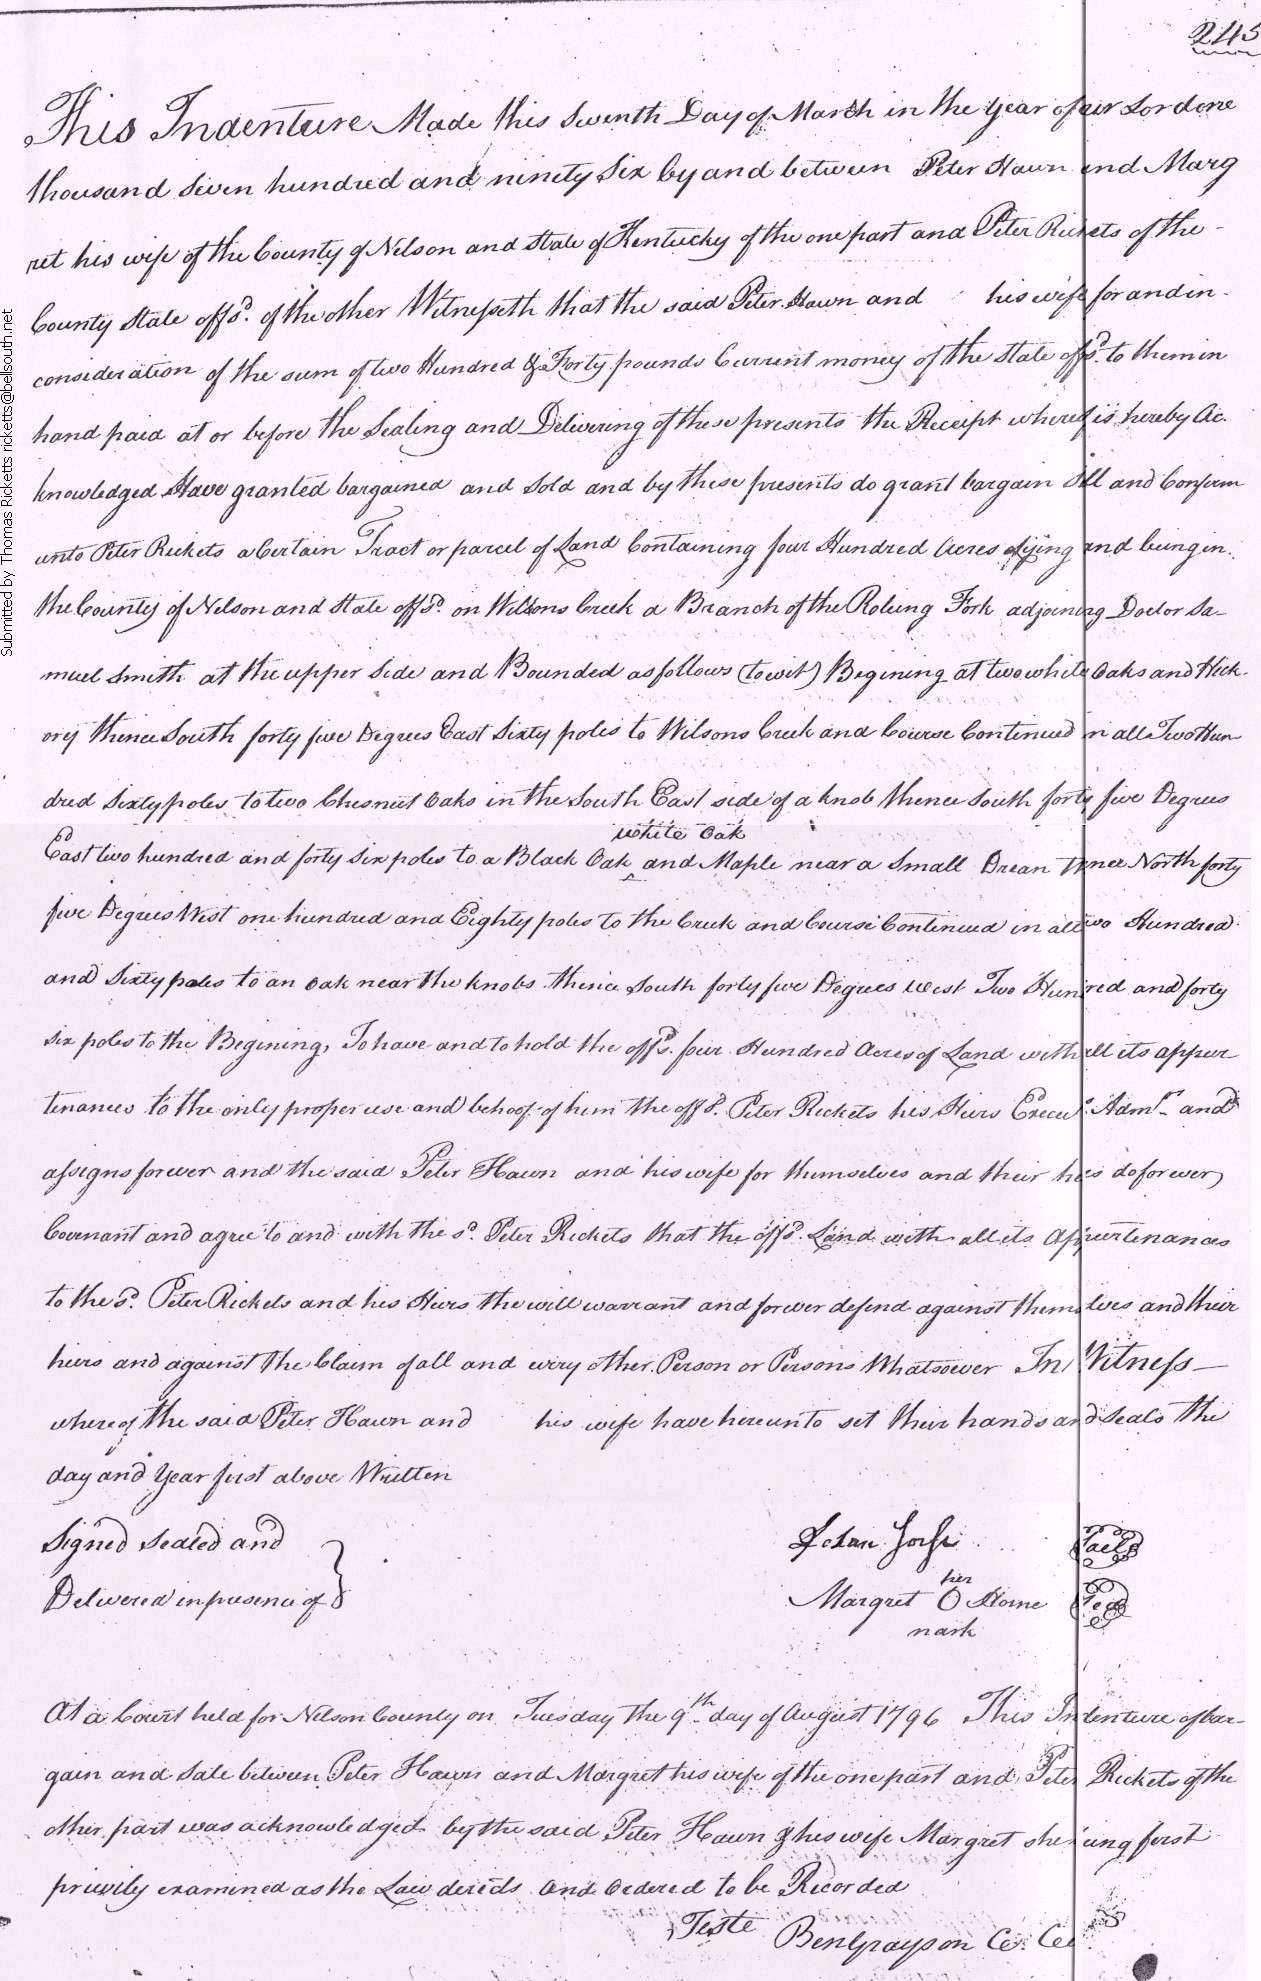 245
This Indenture Made this Seventh Day of March in the Year of our Lord one
thousand Seven hundred and ninety Six by and between Peter Hawn and Marg
ret his wife of the County of Nelson and State of Kentucky of the one part and Peter Rickets of the
County State affsd. of the other Witnesseth that the said Peter Hawn and his wife for and in
consideration of the sum of two Hundred & Forty pounds Current money of the State affsd. to them in
hand paid at or before the Sealing and Delivering of these presents the Receipt whereof is hereby Ac
knowledged Have granted bargained and Sold and by these presents do grant bargain Sell and Confirm
unto Peter Rickets a Certain Tract or parcel of Land Containing four Hundred Acres lying and being in
the County of Nelson and State affsd. on Wilsons Creek a Branch of the Roling Fork adjoining Doctor Sa-
muel Smith at the upper Side and Bounded as follows (to wit) Begining at two white Oaks and Hick-
ory thence South forty five Degrees East Sixty poles to Wilsons Creek and Course Continued in all Two Hun
dred Sixty poles to two Chesnut Oaks in the South East side of a knob thence South forty five Degrees
white Oak
East two hundred and forty six poles to a Black Oak ^ and Maple near a Small Drean thence North forty
five Degrees West one hundred and Eighty poles to the Creek and Course Continued in all two Hundred
and Sixty poles to an Oak near the knobs thence South forty five Degrees West Two Hundred and forty
six poles to the Begining, To have and to hold the affsd. four Hundred Acres of Land with all its appur
tenances to the only proper use and behoof of him the affsd. Peter Rickets his Heirs Execurs. Admr. and
assigns forever and the said Peter Hawn and his wife for themselves and their heirs do forever
Covenant and agree to and with the sd. Peter Rickets that the affsd. Land with all its Appurtenances
to the sd. Peter Rickets and his Heirs the will warrant and forever defend against themselves and their
heirs and against the Claim of all and every other Person or Persons Whatsoever In Witness
whereof the said Peter Hawn and his wife have hereunto set their hands and Seals the
day and Year first above Written
Signed Sealed and
Delivered in presence of
Seal
her
Margret O Horne Seal
mark
At a Court held for Nelson County on Tuesday the 9th day of August 1796 This Indenture of bar-
gain and Sale between Peter Hawn and Margret his wife of the one part and Peter Rickets of the
other part was acknowledged by the said Peter Hawn & his wife Margret she being first
privily examined as the Law directs and ordered to be Recorded
Teste Ben Grayson
Submitted by Thomas Ricketts ricketts@bellsouth.net